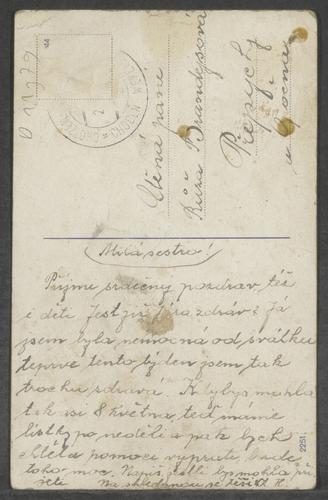 44
Ctěná paní
Růža
Přepychy
u Opočna
Milá sestro!
Přijmi srdečný pozdrav, též
i děti. Jest již zdráv? Já
jsem byla nemocná od svátku
teprve tento týden jsem tak
trochu zdravá. Kdybys mohla
tak si 8 května teď máme
lístky po neděli a pak bych
chtěla pomoct vyprat bude
toho moc. Napiš, jestli bys mohla při
jeti. Na shledanou se těší
2251